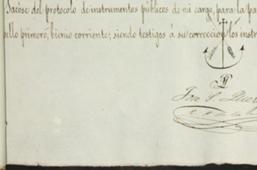 Sacóse del protocolo de instrumentos públicos de mi cargo, para la pa
sello primero, bienio corriente; siendo testigos á su corrección los instr